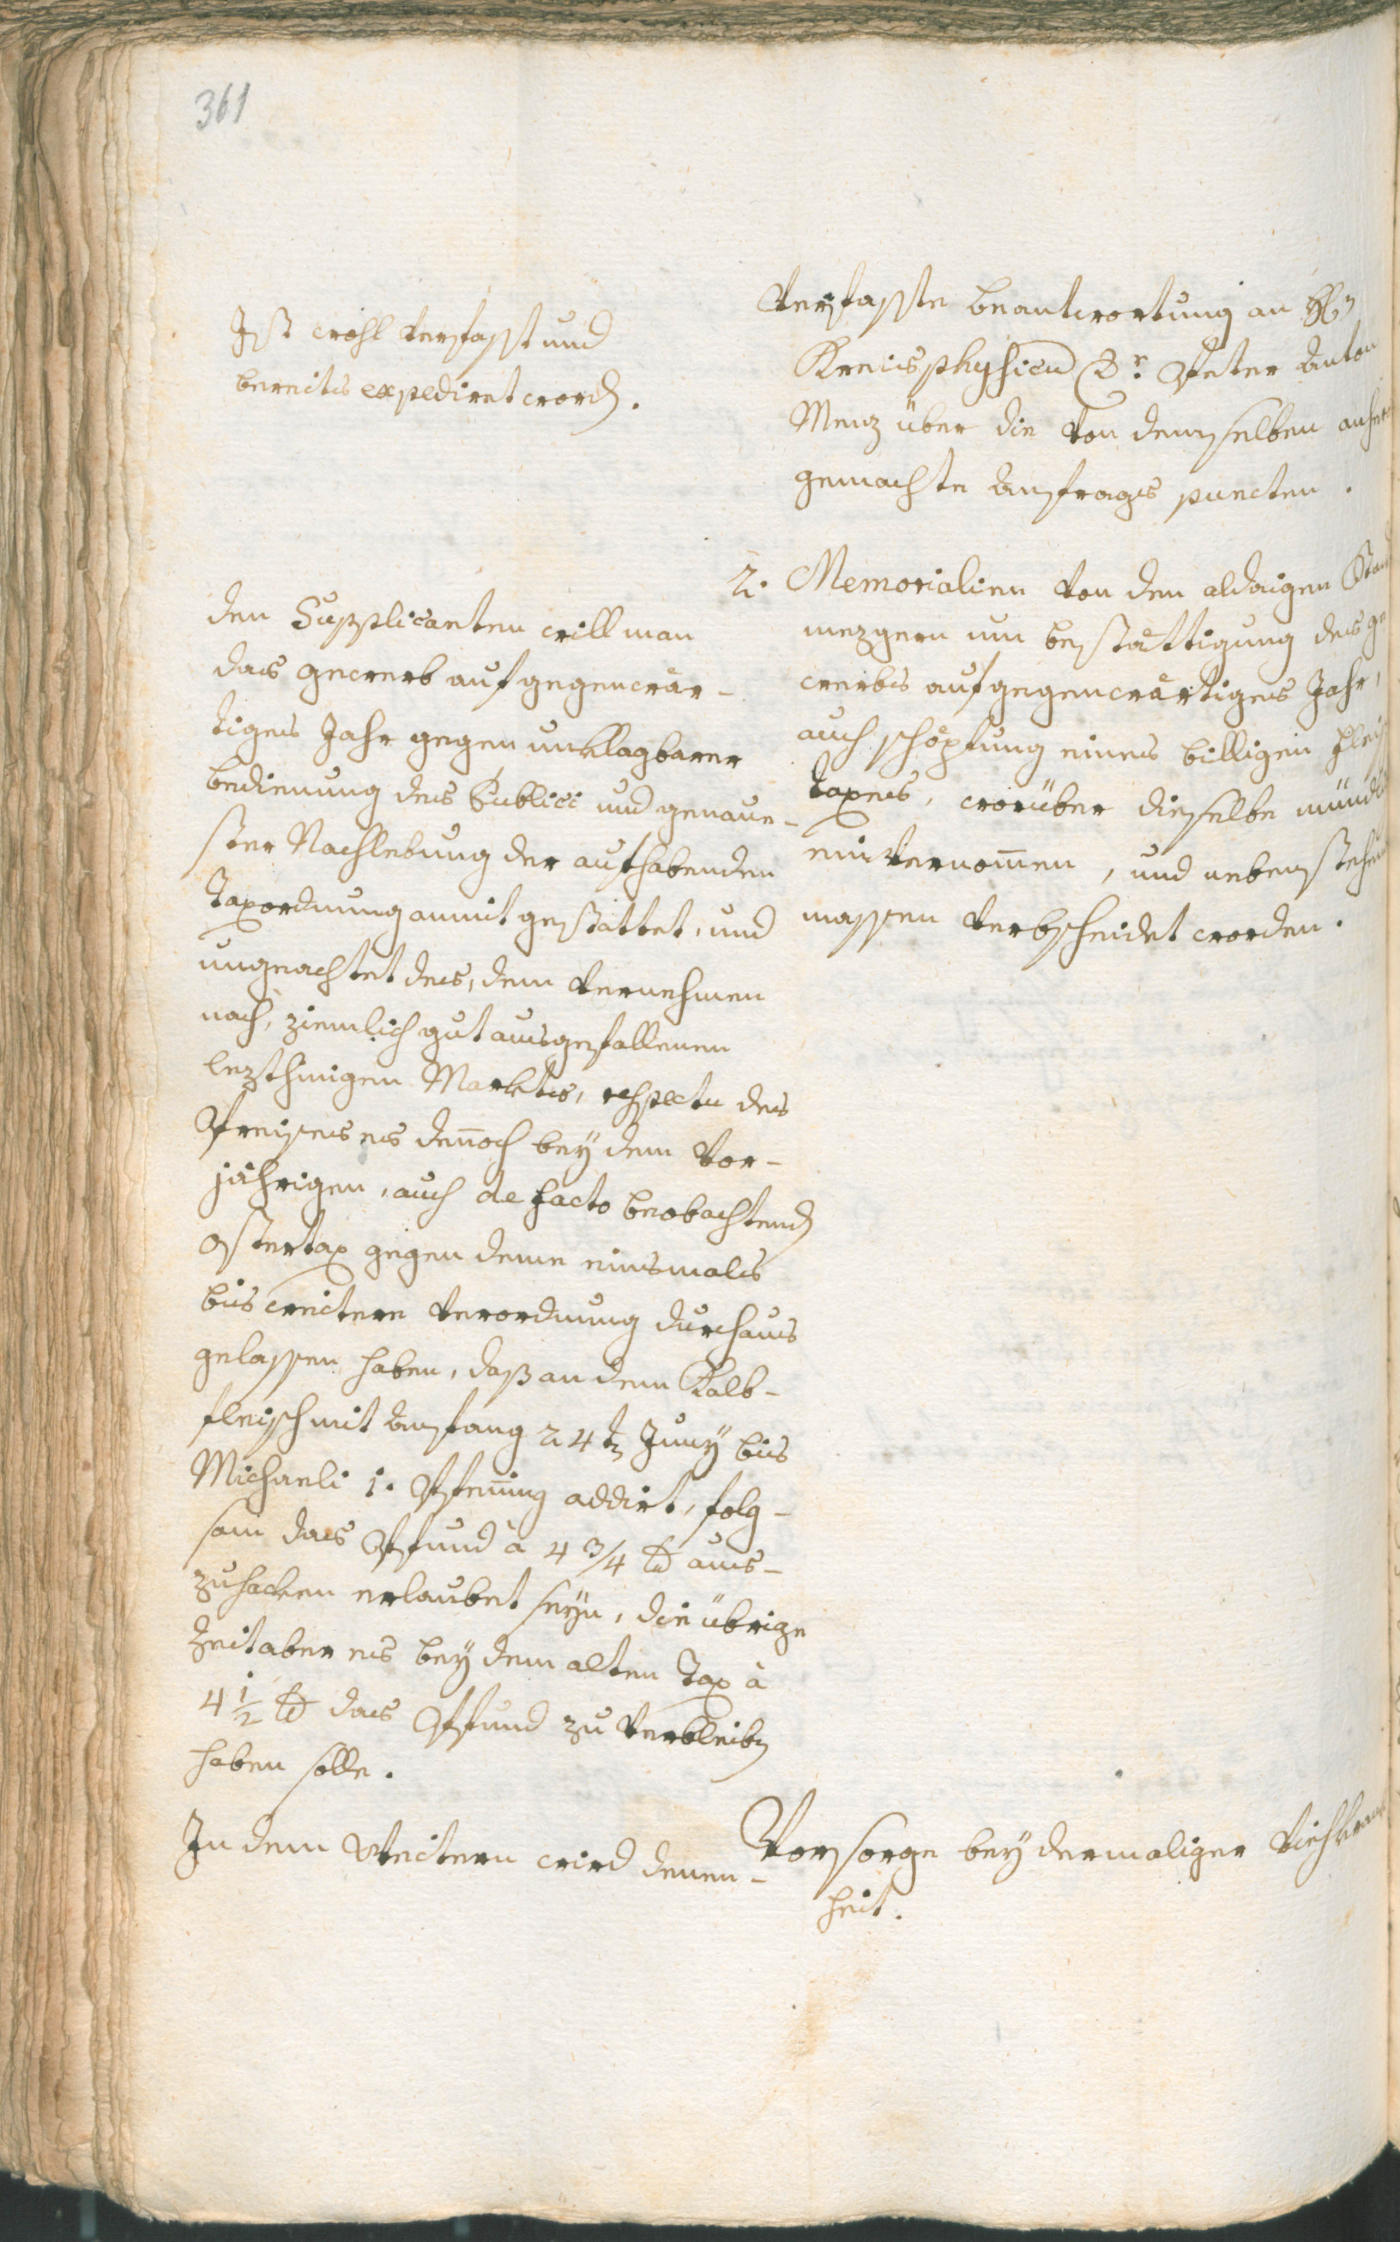 361
Ist wohl verfasst und
bereits expediret word.
Verfasste beantwortung an H.
Kreisphysicu Dr. Peter Anton
Menz über die von demselben anher
gemachte anfrags puncten.
den Supplicanten will man
das gewerb auf gegenwär-
tiges Jahr gegen unklagbarer
bedienung des Publici und genaue-
ster Nachlebung der aufhabenden
Taxordnung anmit gestattet, und
ungeachtet des, dem vernehmen
nach, ziemlich gut ausgefallenen
lezthinigen Markts, respectu des
Preises es deñoch bey dem vor-
jährigen, auch de facto beobachtend
ostertax gegen deme einsmals
bis weitere verordnung durchaus
gelassen haben, daß an dem Kalb-
fleisch mit anfang 24t Juny bis
Michaeli 1. Pfeñing addirt, folg-
sam das Pfund à 4 3/4 xr aus-
zuhacken erlaubet seyn, die übrige
Zeit aber es bey dem alten Tax à
4 1/2 xr das Pfund zu verbleibn
haben solle.
2. Memorialien von den aldaigen Stadt
mezgern um bestättigung des ge
werbs auf gegenwärtiges Jahr,
auch schöpfung eines billigen fleisch
taxes, worüber dieselbe mündlich
einvernom̄en, und nebenstehender
massen verbscheidet worden.
In dem Weitern wird denen-
Vorsorge bey dermaliger Viehkrank
heit.